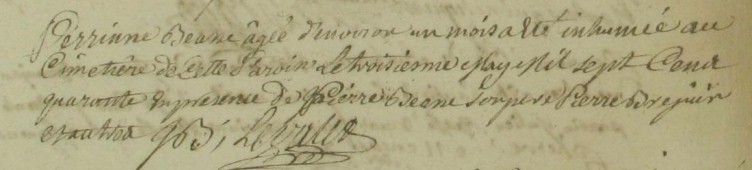 Perrinne Beane âgée d'environ un mois a été inhumée au
Cimetière de cette Paroisse Le troisieme May Mil sept Cent
quarante en presence de Pierre Beane son pere Pierre
et autres